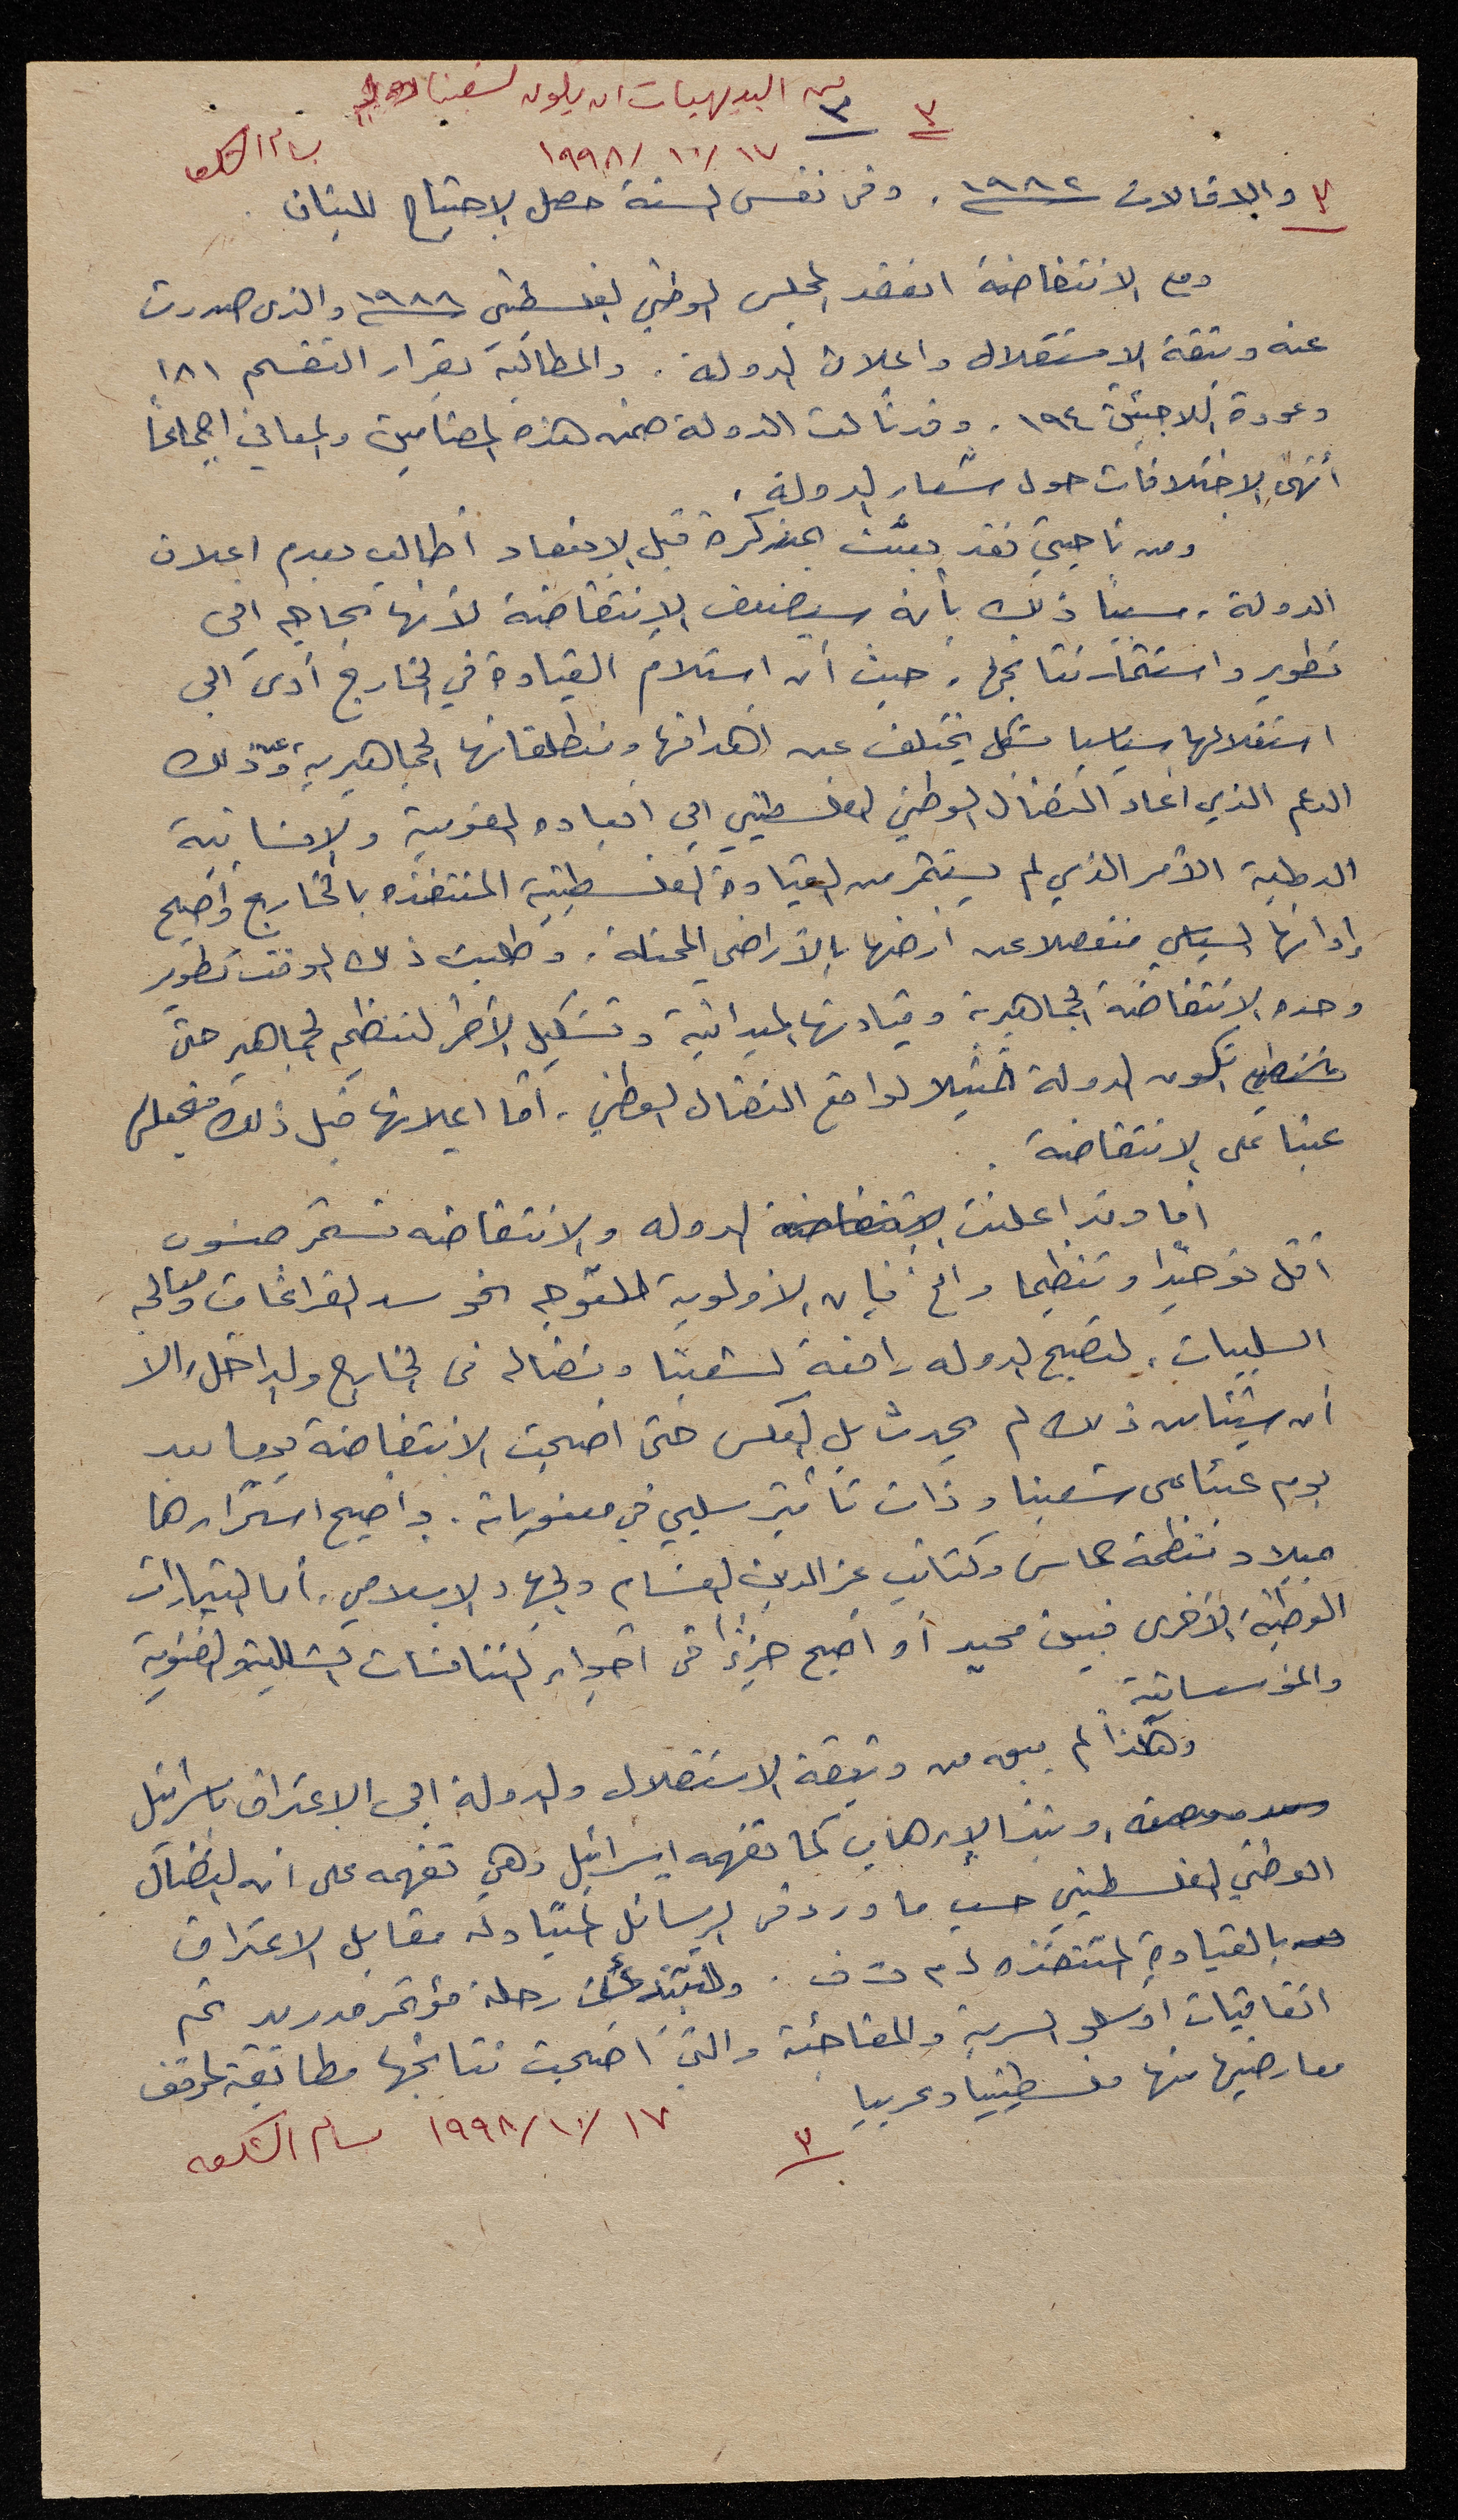 من البديهيات ان يكون لشعبنا دولة
٣ ٣
١٩٩٨/١٠/١٧ بسام الشكعه
٣ والاقالات ١٩٨٢. وفي نفس السنة حصل الاجتياح للبنان.
ومع الانتفاضة انعقد المجلس الوطني الفلسطيني ١٩٨٨ والذي صدرت
عنه وثيقة الاستقلال واعلان الدولة. والمطالبة بقرار التقسيم ١٨١
وعودة اللاجئين ١٩٤. وقد نالت الدولة ضمن هذه المضامين والمعاني اجماعاً
أنهى الاختلافات حول شعار الدولة.
ومن ناحيتي فقد بعثت بمذكرة قبل الانعقاد أطالب بعدم اعلان
الدولة. مسبباً ذلك بأنه سيضعف الانتفاضة لأنها بحاجة الى
تطوير واستثمار نتائجها. حيث أن استلام القيادة في الخارج أدى الى
استغلالها سياسيا بشكل يختلف عن اهدافها ومنطلقاتها الجماهيرية وعن ذلك
الدعم الذي اعاد النضال الوطني الفلسطيني الى ابعاده القومية والانسانية
الدولية الأمر الذي لم يستثمر من القيادة الفلسطينية المتنفذه بالخارج وأصبح
إدائها السياسي منفصلا عن أرضها بالأراضي المحتلة. وطلبت ذلك الوقت تطوير
وحده الانتفاضة الجماهيرية وقيادتها الميدانية وتشكيل الأطر لتنظيم الجماهير حتى
تكون الدولة تمثيلا لواقع النضال الوطني. أما اعلانها قبل ذلك فيجعلها
عبئا على الانتفاضة.
أما وقد اعلنت الانتفاضة الدوله والانتفاضه تستمر بمنسوب
أقل توحيداً وتنظيما والخ فإن الأولوية للتوجه نحو سد الفراغات ومعالجة
السلبيات. لتصبح الدوله رافعة لشعبنا ونضاله في الخارج والداخل. الا
أن شيئا من ذلك لم يحدث بل العكس حتى اضحت الانتفاضة يوما بعد
يوم عبئا على شعبنا وذات تأثير سلبي في معنوياته. واصبح استمرارها
ميلاد منظمة حماس وكتائب عز الدين القسام والجهاد الاسلامي. أما التيارات
الوطنية الأخرى فبين محيد أو أصبح جزءاً في اجواء المنافسات الشللية والفئوية
والمؤسساتية
وهكذا لم يبق من وثيقة الاستقلال والدولة الى الاعتراف باسرائيل
ونبذ الإرهاب كما تفهمه اسرائيل وهي تفهمه على انه النضال
الوطني الفلسطيني حسب ما ورد في الرسائل المتبادله مقابل الاعتراف
بالقيادة المتنفذه لـ م ت ف. ولتبتدئ رحلة مؤتمر مدريد ثم
اتفاقيات اوسلو السرية والمفاجئة والتي أضحت نتائجها مطابقة لموقف
معارضيها منها فلسطينيا وعربيا
١٩٩٨/١٠/١٧ بسام الشكعه
٣